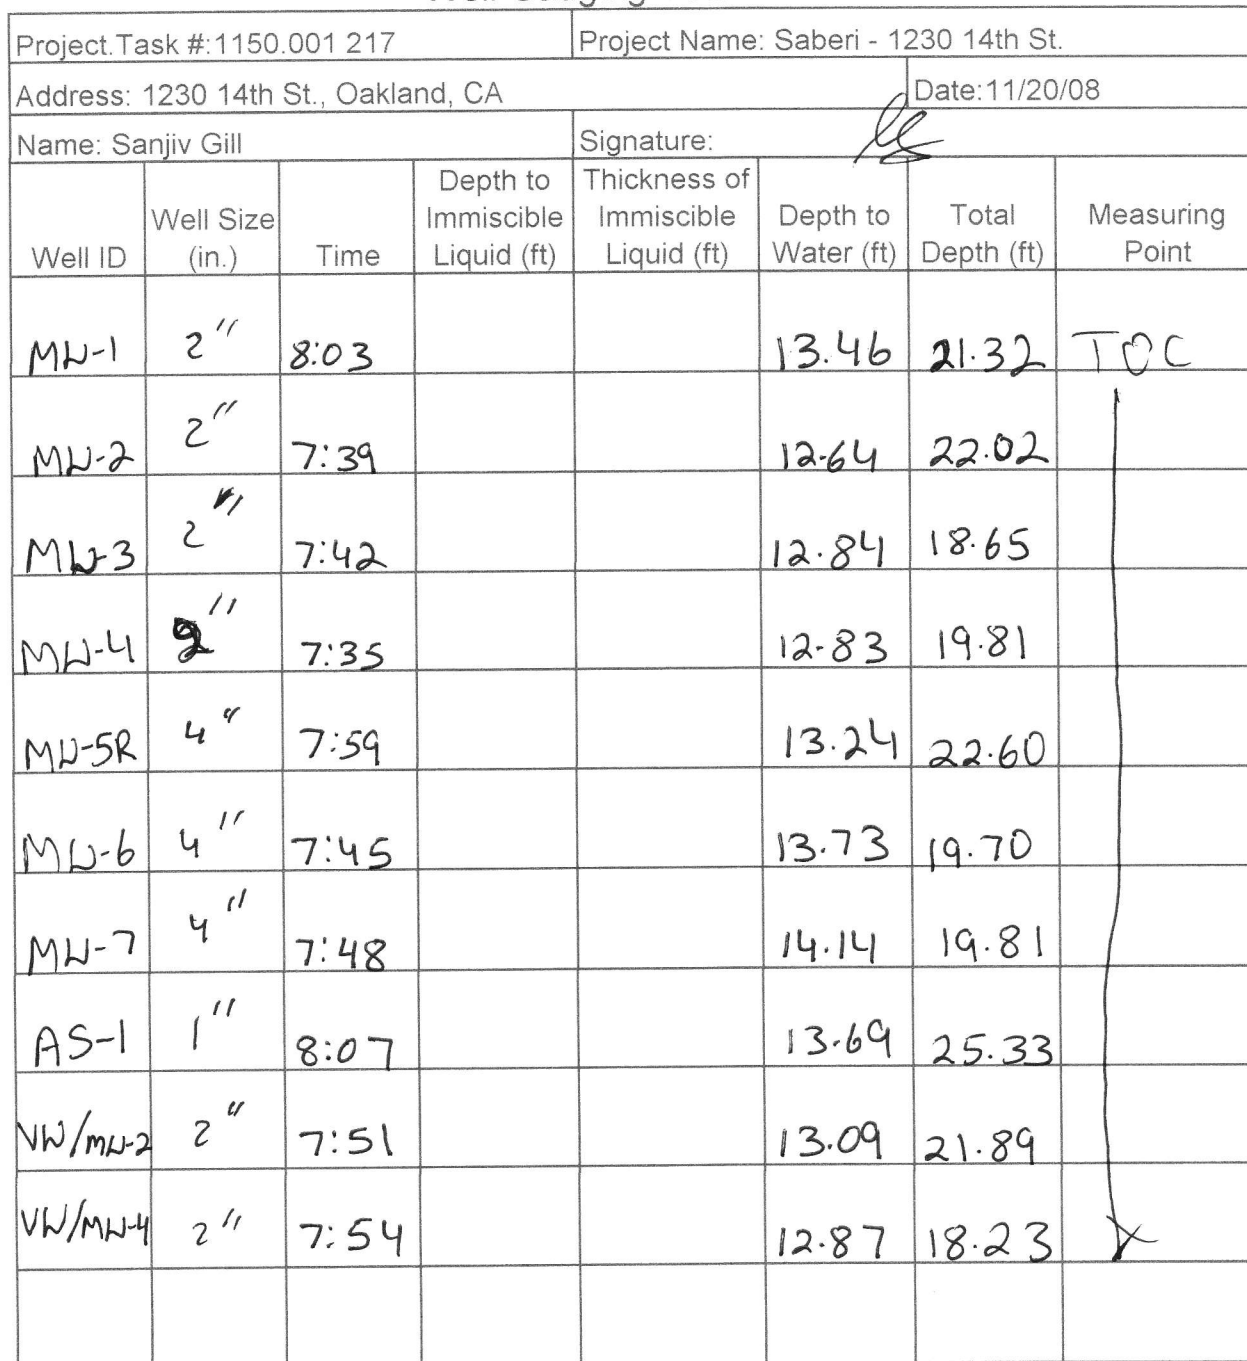 Project.Task #:1150.001 217 Project Name: Saberi - 1230 14th St.
Address: 1230 14th St., Oakland, CA Date:11/20/08
Name: Sanjiv Gill Signature:
Well ID Well Size (in.) Time Depth to Immiscible Liquid (ft) Thickness of Immiscible Liquid (ft) Depth to Water (ft) Total Depth (ft) Measuring Point
MW-1 2" 8:03 13.46 21.32 TOC
MW-2 2" 7:39 12.64 22.02
MW-3 2" 7:42 12.84 18.65
MW-4 2" 7:35 12.83 19.81
MW-5R 4" 7:59 13.24 22.60
MW-6 4" 7:45 13.73 19.70
MW-7 4" 7:48 14.14 19.81
AS-1 1" 8:07 13.69 25.33
VW/MW-2 2" 7:51 13.09 21.89
VW/MW-4 2" 7:54 12.87 18.23